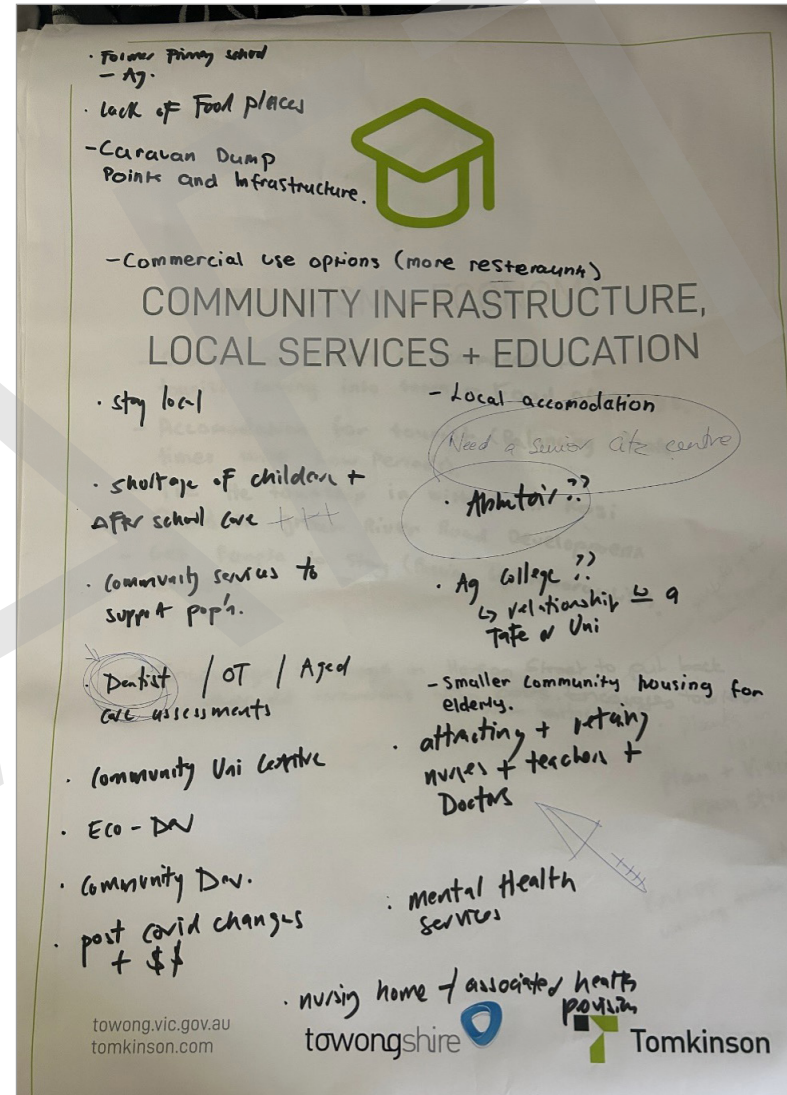 · Former Primary school
- Ag.
· lack of Food places
- Caravan Dump
Points and Infrastructure.
- Commercial use options (more resteraunts)
COMMUNITY INFRASTRUCTURE,
LOCAL SERVICES + EDUCATION
· stay local
· shortage of childcare +
After school care +++
· Community services to
support pop'n.
· Dentist / OT / Aged
care assessments
· Community Uni Centre
· Eco - Dev
· Community Dev.
· post covid changes
+ $$
- Local accomodation
Need a senior citz centre
· Abbatoir ??
· Ag College ??
↳ relationship w a
Tafe or Uni
- Smaller community housing for
elderly.
· attracting + retaing
nurses + teachers +
Doctors
· mental Health
services
· nursing home + associated health
provision
towong.vic.gov.au
tomkinson.com
towongshire
Tomkinson